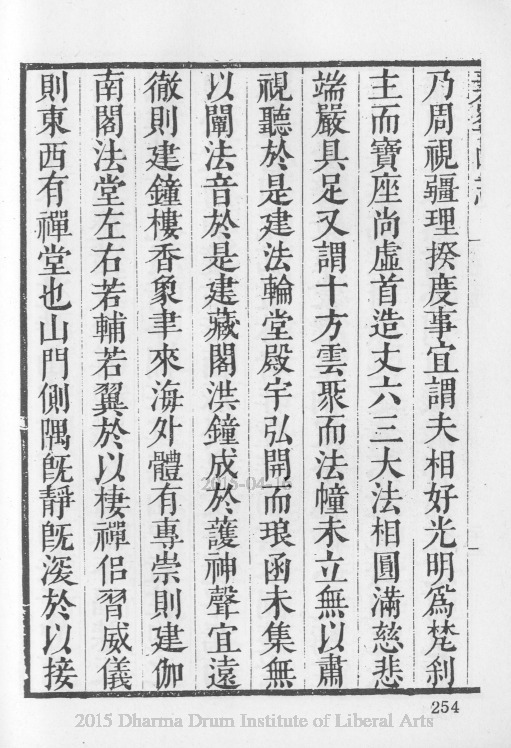 乃周視疆理揆度事宜謂夫相好光明爲梵刹
主而寶座尚虛首造丈六三大法相圓滿慈悲
端嚴具足又謂十方雲聚而法幢未立無以肅
視聽於是建法輪堂殿宇弘開而琅函未集無
以闡法音於是建藏閣洪鐘成於護神聲宜遠
徹則建鐘樓香象聿來海外體有專崇則建伽
南閣法堂左右若輔若翼於以棲禪侶習威儀
則東西有禪堂也山門側隅旣靜旣深於以接
254
2015-04-16
2015 Dharma Drum Institute of Liberal Arts